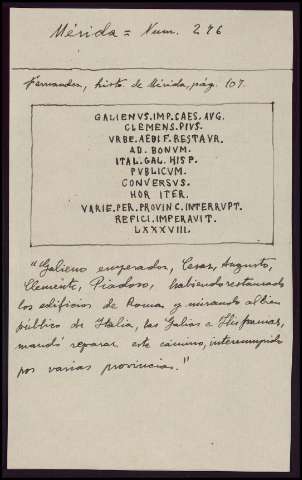 Mérida = Num. 276
Fernandez, histo. de Mérida, pág. 107.
GALIENVS.IMP.CAES.AVG.
CLEMENS.PIVS.
VRBE.AEDIF.RESTAVR.
AD.BONVM.
ITAL.GAL.HISP.
PVBLICVM.
CONVERSVS.
HOR ITER.
VARIE.PER.PROVINC.INTERRVPT.
REFICI.IMPERAVIT.
LXXXVIII.
"Galieno emperador, Cesar, Augusto,
Clemente, Piadoso, habiendo restaurado
los edificios de Roma y mirando al bien
público de Italia, las Galias e Hispanias,
mandó reparar este camino, interrumpido
por varias provincias."